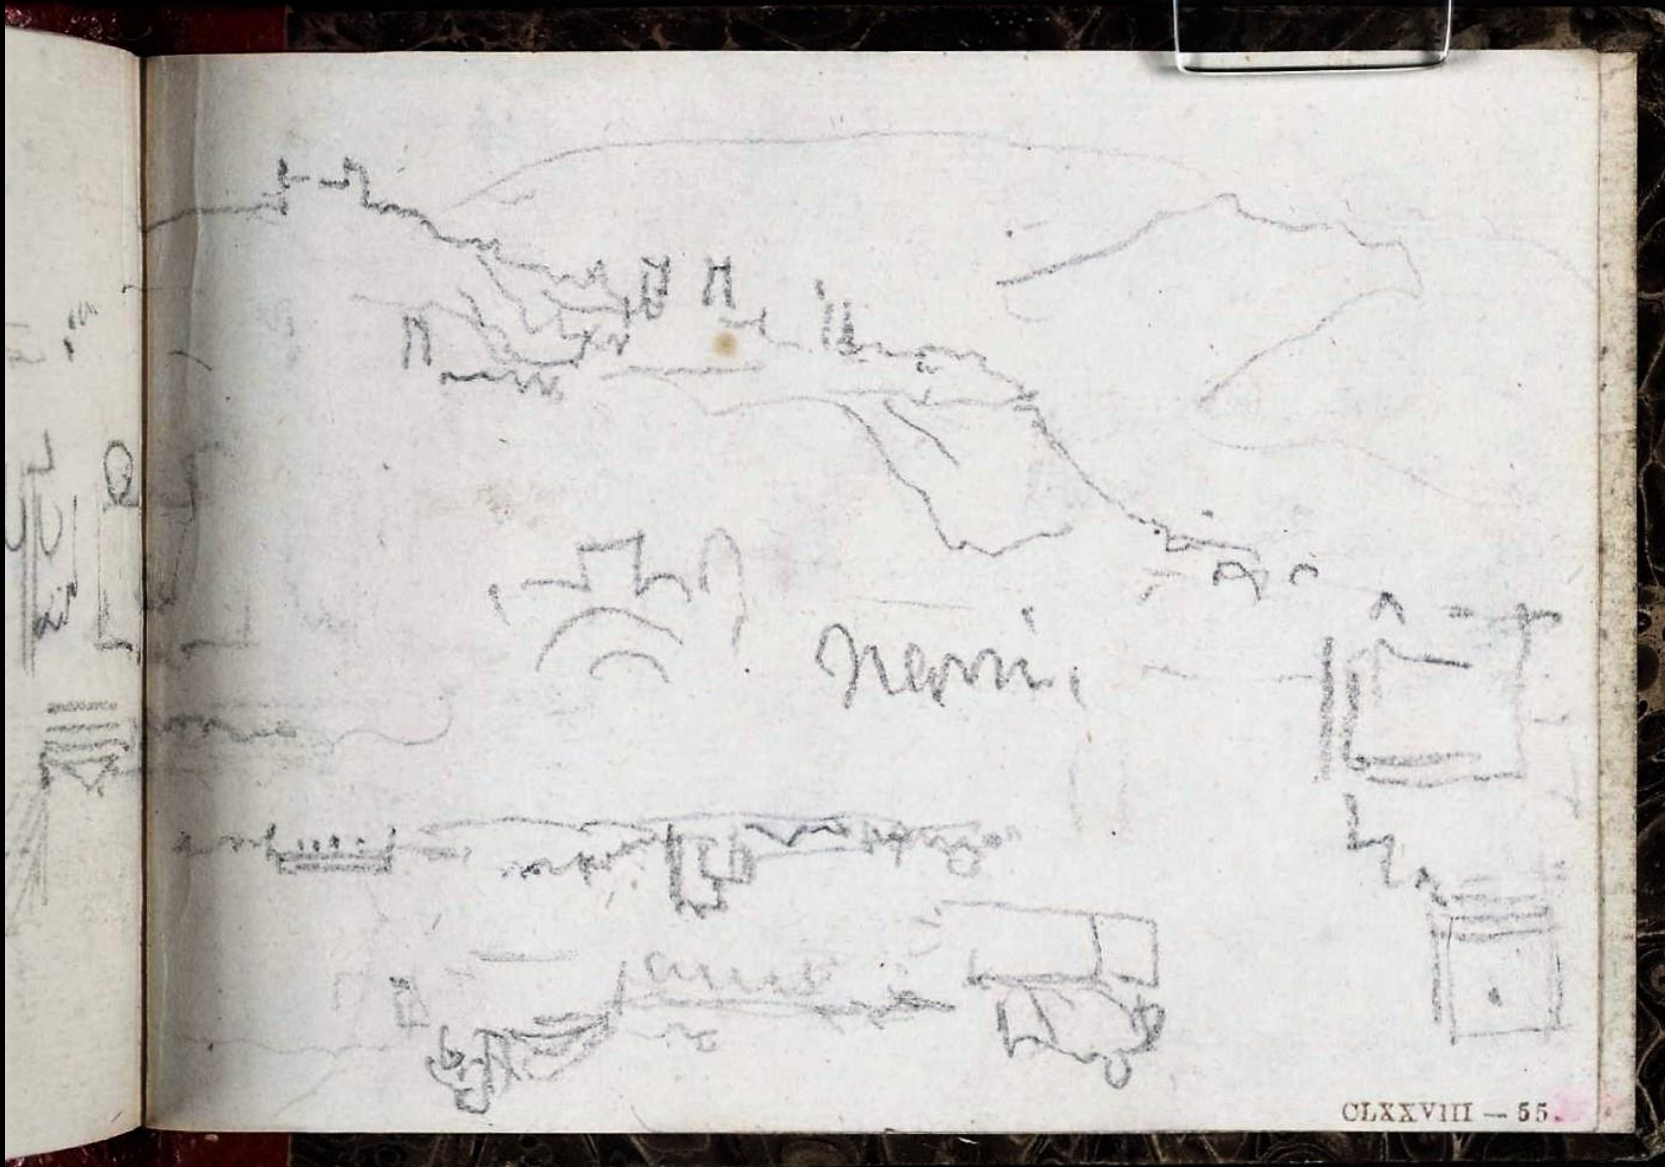 Narni
CLXXVIII — 55.